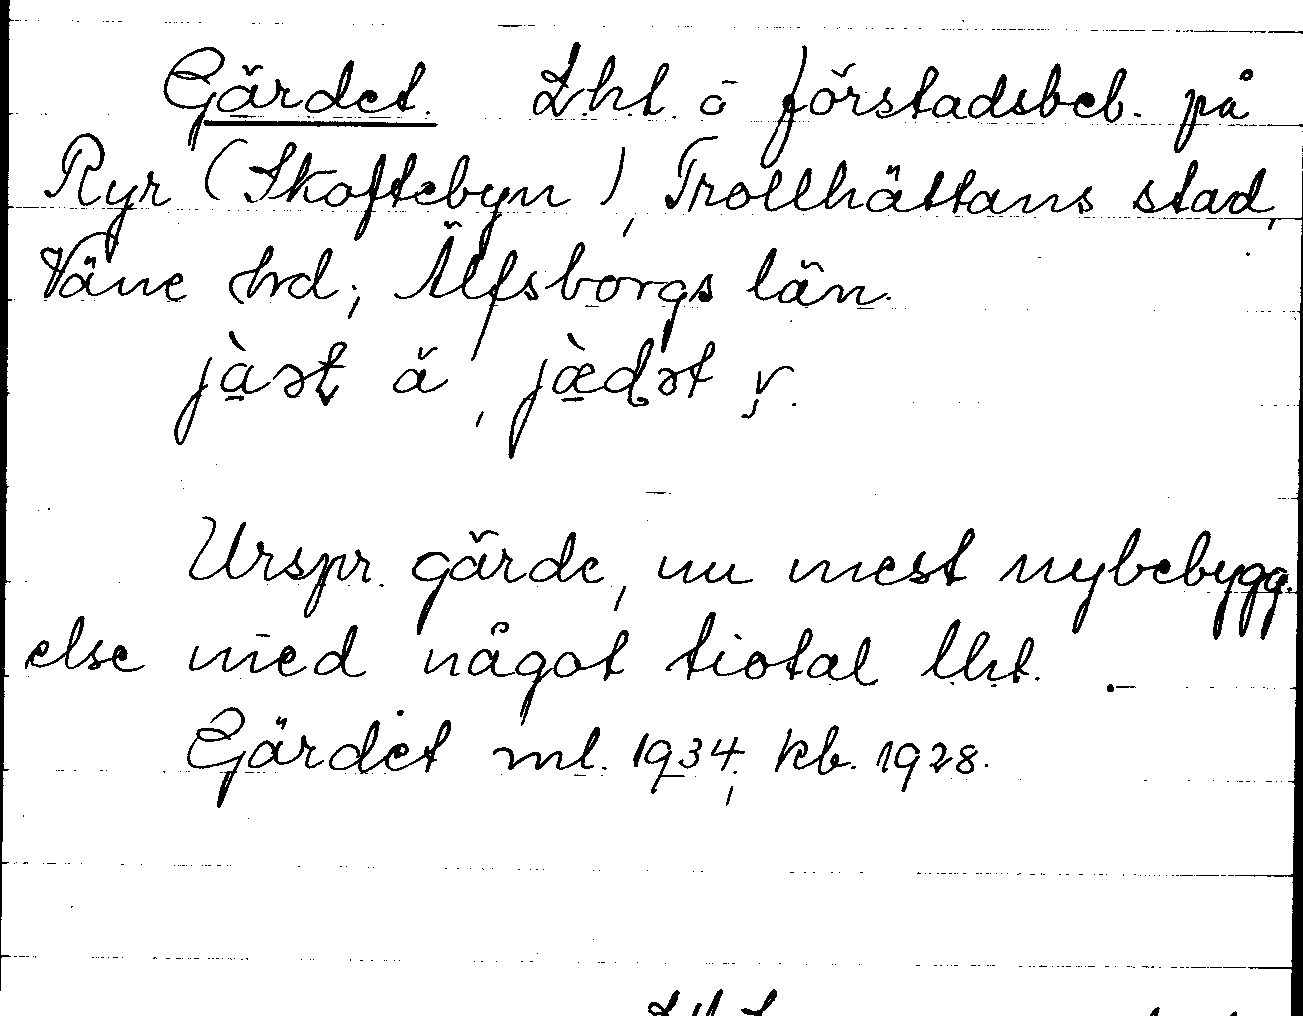 Gärdet. Lht. o förstadsbeb. på
Ryr (Skoftebyn), Trollhättans stad,
Väne hrd; Älfsborgs län.
jàət ä, jæ̀dət y.
Urspr. gärde, nu mest nybebygg-
else med något tiotal lht.
Gärdet ml. 1934, kb. 1928.